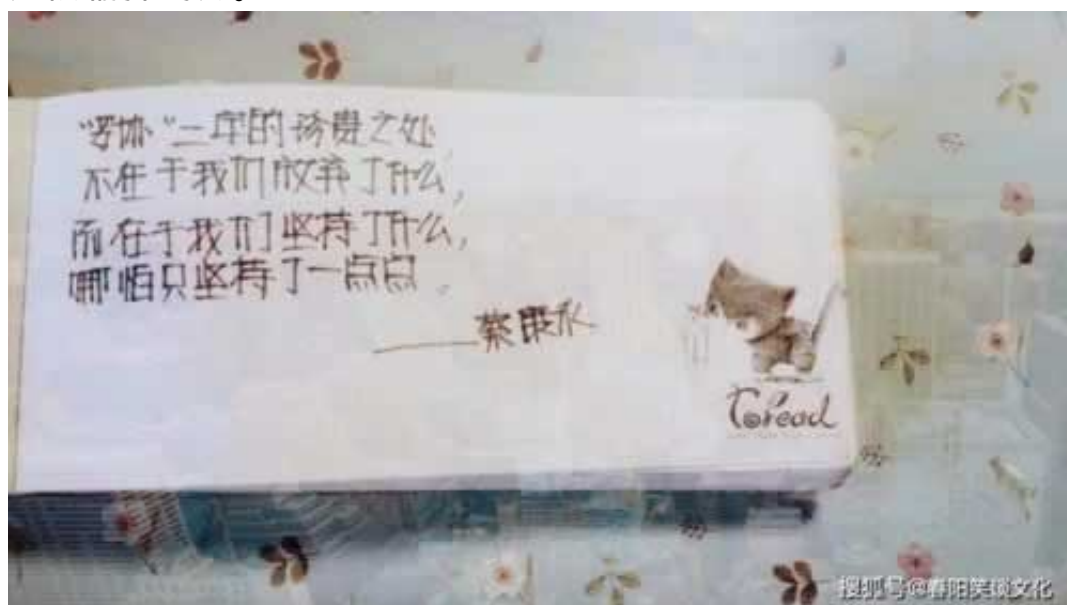 “罗休”二字的珍贵之处
不在于我们放弃了什么,
而在于我们坚持了什么,
哪怕只坚持了一点点。
——蔡康永
Toread
搜狐号@春阳笑谈文化